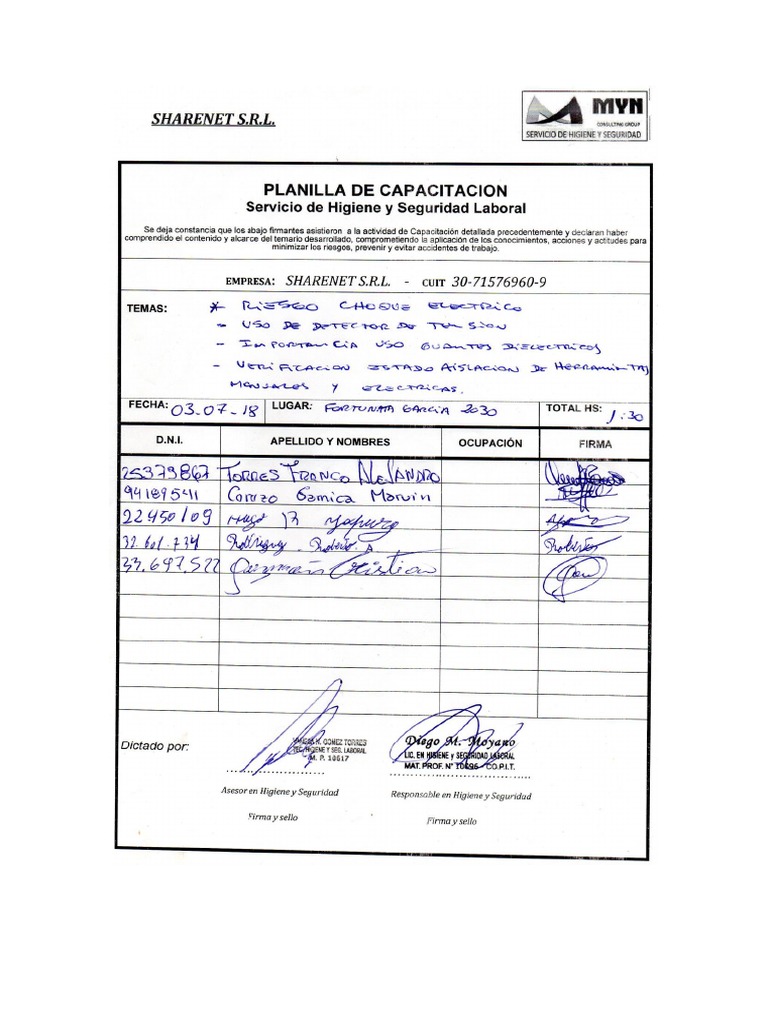 SHARENET S.R.L.
MYN
CONSULTING GROUP
SERVICIO DE HIGIENE Y SEGURIDAD
PLANILLA DE CAPACITACION
Servicio de Higiene y Seguridad Laboral
Se deja constancia que los abajo firmantes asistieron a la actividad de Capacitación detallada precedentemente y declaran haber
comprendido el contenido y alcance del temario desarrollado, comprometiendo la aplicación de los conocimientos, acciones y actitudes para
minimizar los riesgos, prevenir y evitar accidentes de trabajo.
EMPRESA: SHARENET S.R.L. - CUIT 30-71576960-9
TEMAS: * RIESGO CHOQUE ELECTRICO
- USO DE DETECTOR DE TENSION
- IMPORTANCIA USO GUANTES DIELECTRICOS
- VERIFICACION ESTADO AISLACION DE HERRAMIENTAS
MANUALES Y ELECTRICAS.
FECHA: 03-07-18 LUGAR: FORTUNATA GARCIA 2030 TOTAL HS: 1:30
D.N.I. APELLIDO Y NOMBRES OCUPACIÓN FIRMA
25379867 TORRES FRANCO ALEJANDRO
94189541 Gamica Marvin
22450109 Hugo R
32.601.734 Rodriguez Roberto A Roberto
33.697.522 Guzmán Cristian
Dictado por:
N. GOMEZ TORRES
TEC. HIGIENE Y SEG. LABORAL
M. P. 10617
Diego M. Moyano
LIC. EN HIGIENE y SEGURIDAD LABORAL
MAT. PROF. N° 10696 - CO.P.I.T.
Asesor en Higiene y Seguridad
Responsable en Higiene y Seguridad
Firma y sello
Firma y sello